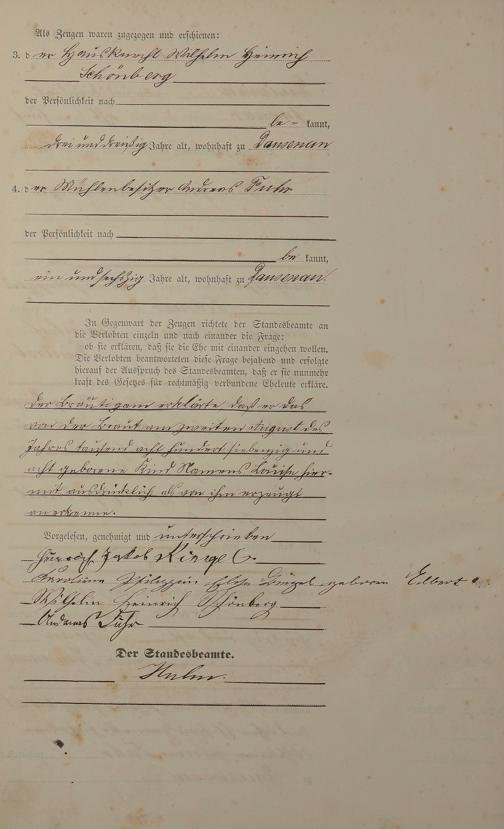 Als Zeugen waren zugezogen und erschienen:
3. der Hausknecht Wilhelm Heinrich
Schönberg
der Persönlichkeit nach
be- kannt,
drei und dreißig Jahre alt, wohnhaft zu Dausenau
4. der Mühlenbesitzer Andreas Fuhr
der Persönlichkeit nach
be kannt,
ein und sechszig Jahre alt, wohnhaft zu Dausenau.
In Gegenwart der Zeugen richtete der Standesbeamte an
die Verlobten einzeln und nach einander die Frage:
ob sie erklären, daß sie die Ehe mit einander eingehen wollen.
Die Verlobten beantworteten diese Frage bejahend und erfolgte
hierauf der Ausspruch des Standesbeamten, daß er sie nunmehr
kraft des Gesetzes für rechtmäßig verbundene Eheleute erkläre.
Der Bräutigam erklärte daß er das
von der Braut am zweiten August des
Jahres tausend acht hundert siebenzig und
acht geborene Kind Namens Louise hier-
mit ausdrücklich als von ihm erzeugt
anerkenne.
Vorgelesen, genehmigt und unterschrieben
Jakob
Karoline geboren Elbert
Wilhelm Heinrich Schönberg
Andreas Fuhr
Der Standesbeamte.